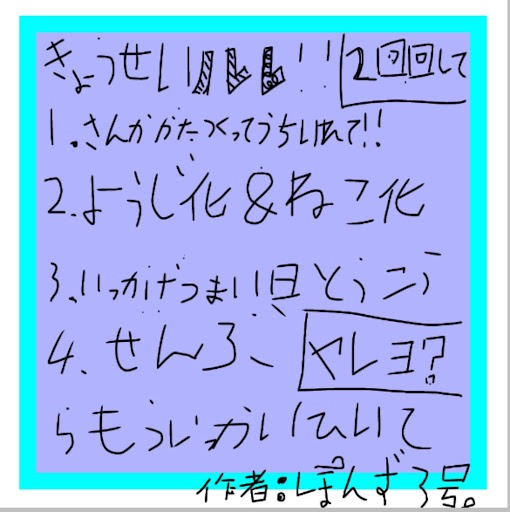 きょうせいルレレ!! 2回回して
1.さんかがたつくってうちいれて!!
2.ようじ化&ねこ化
3.いっかげつまい日とうこう
4.せんろ、 ヤレヨ?
らもういかいひいて
作者:ぽんず3号。